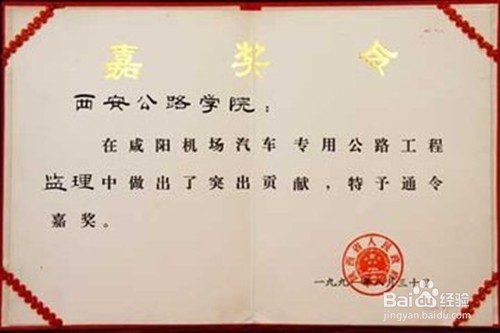 嘉奖令
西安公路学院：
在咸阳机场汽车专用公路工程
监理中做出了突出贡献，特予通令
嘉奖。
陕西省人民政府
一九九 年八月三十日
Baidu经验
jingyan.baidu.com